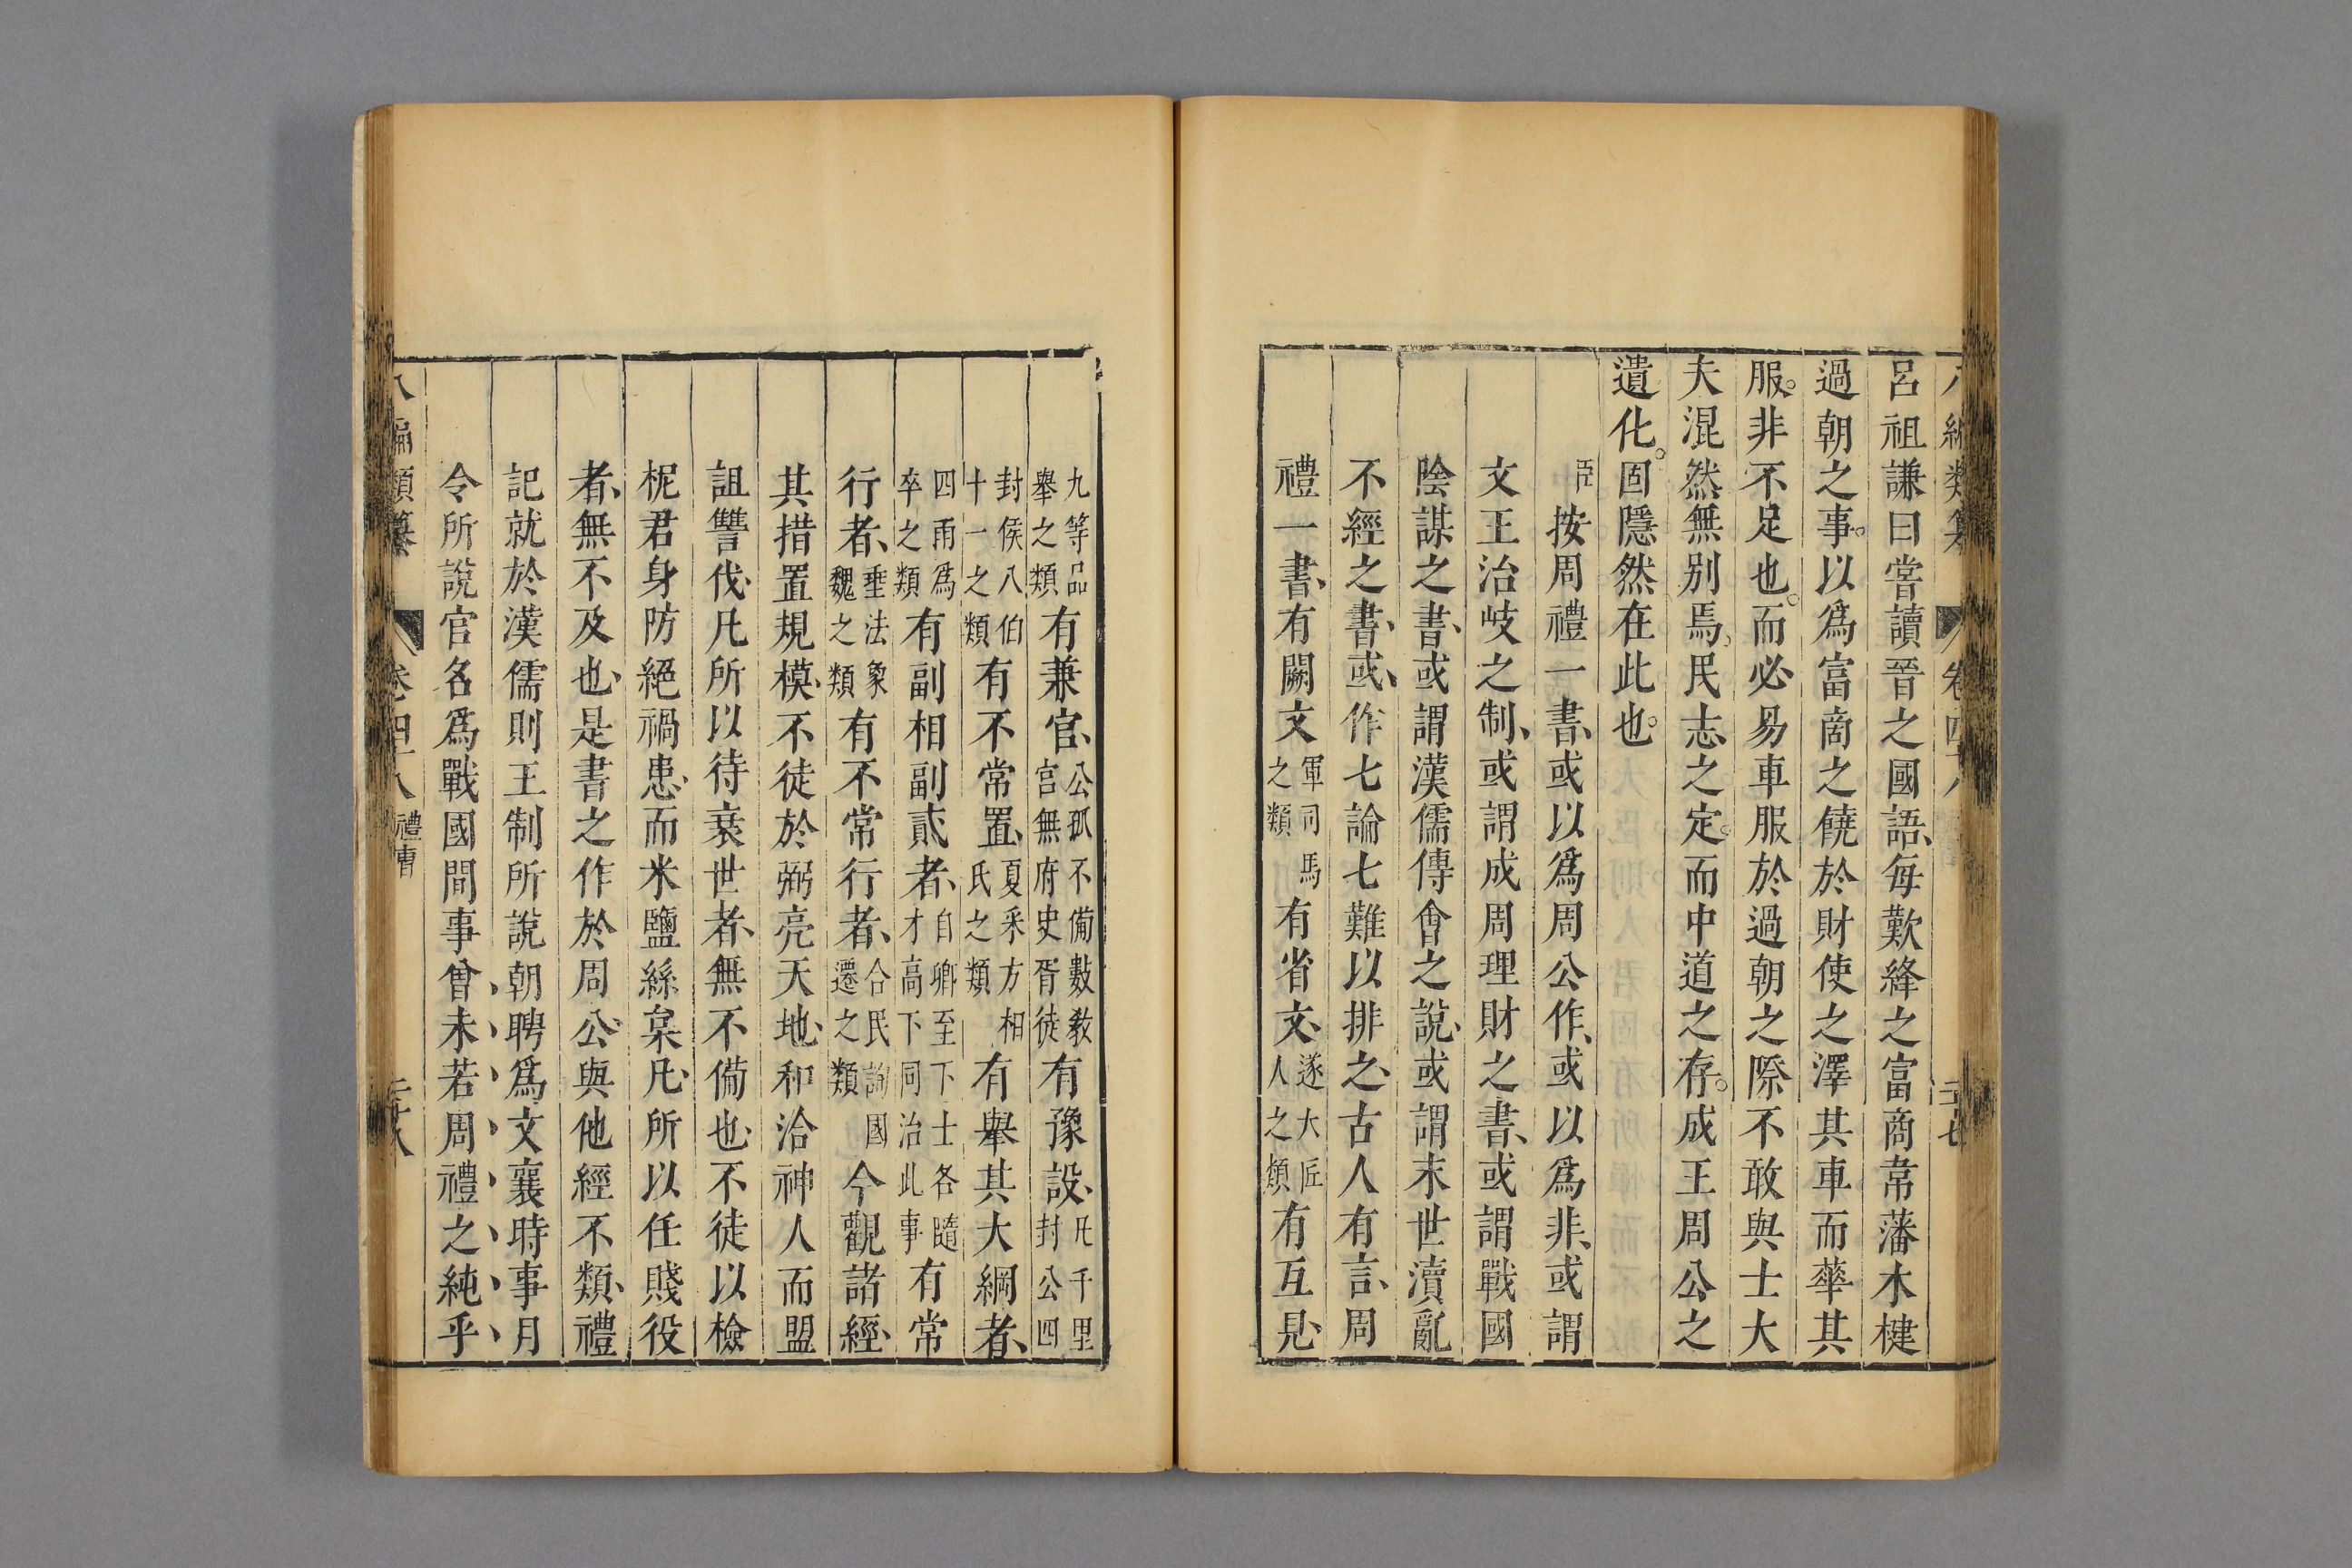 呂祖謙曰嘗讀晉之國語、每歎絳之富商韋藩木楗
過朝之事。以爲富商之饒於財使之澤其車而華其
服。非不足也。而必易車服於過朝之際不敢與士大
夫混然無別焉、民志之定。而中道之存。成王周公之
遺化。固隱然在此也。
臣按周禮一書、或以爲周公作、或以爲非、或謂
文王治岐之制、或謂成周理財之書、或謂戰國
陰謀之書、或謂漢儒傳會之說、或謂末世瀆亂
不經之書、或、作七論七難以排之、古人有言、周
禮一書、有闕文軍司馬之類有省文、遂大匠人之類有互見、
九等品舉之類有兼官、公孤不備數教官無府史胥徒有豫設、凡千里封公四
封侯八伯十一之類有不常置、夏采方相氏之類有舉其大綱者、
四兩爲卒之類有副相副貳者、自卿至下士各隨才高下同治此事有常
行者、垂法象魏之類有不常行者、合民詢國遷之類今觀諸經、
其措置規模、不徒於弼亮天地、和洽神人而盟
詛讐伐、凡所以待衰世者、無不備也、不徒以檢
柅君身防絕禍患、而米鹽絲枲、凡所以任賤役
者、無不及也、是書之作於周公、與他經不類、禮
記就於漢儒則王制所說朝聘爲文襄時事月
令所說官名爲戰國間事曾未若周禮之純乎
八編類纂
卷四十八
禮曹
二十八